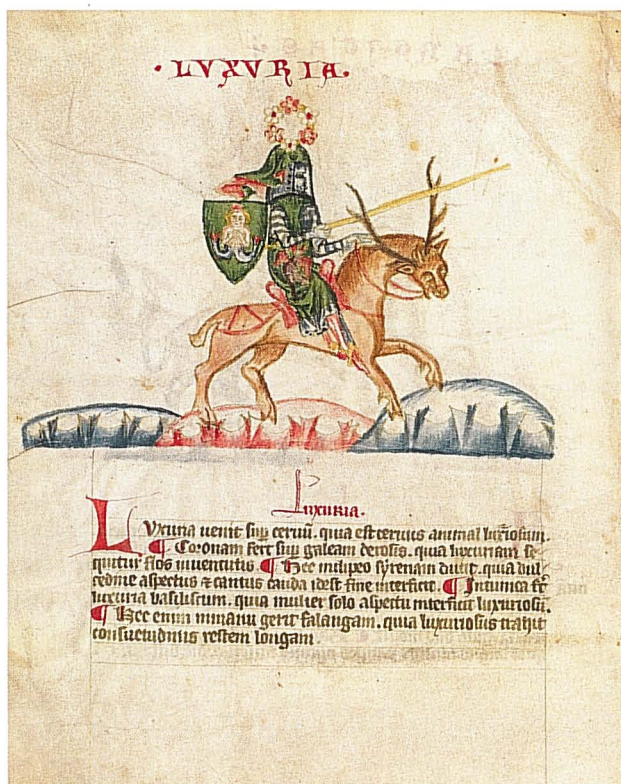 · LVXVRIA ·
Luxuria.
LVxuria uenit sup ceruũ. quia est ceruus animal luxĩosum.
¶ Coronam fert sup galeam de rosis. quia luxuriam se
quitur flos iuuentutis. ¶ Hec in clipeo syrenam ducit. quia dul
cedine aspectus ⁊ cantus cauda idest fine interficit. ¶ In tunica
luxuria basiliscum. quia mulier solo aspectu interficit luxuriosũ.
¶ Hec enim in manu gerit falangam. quia luxuriosus trahit
consuetudinis restem longam.